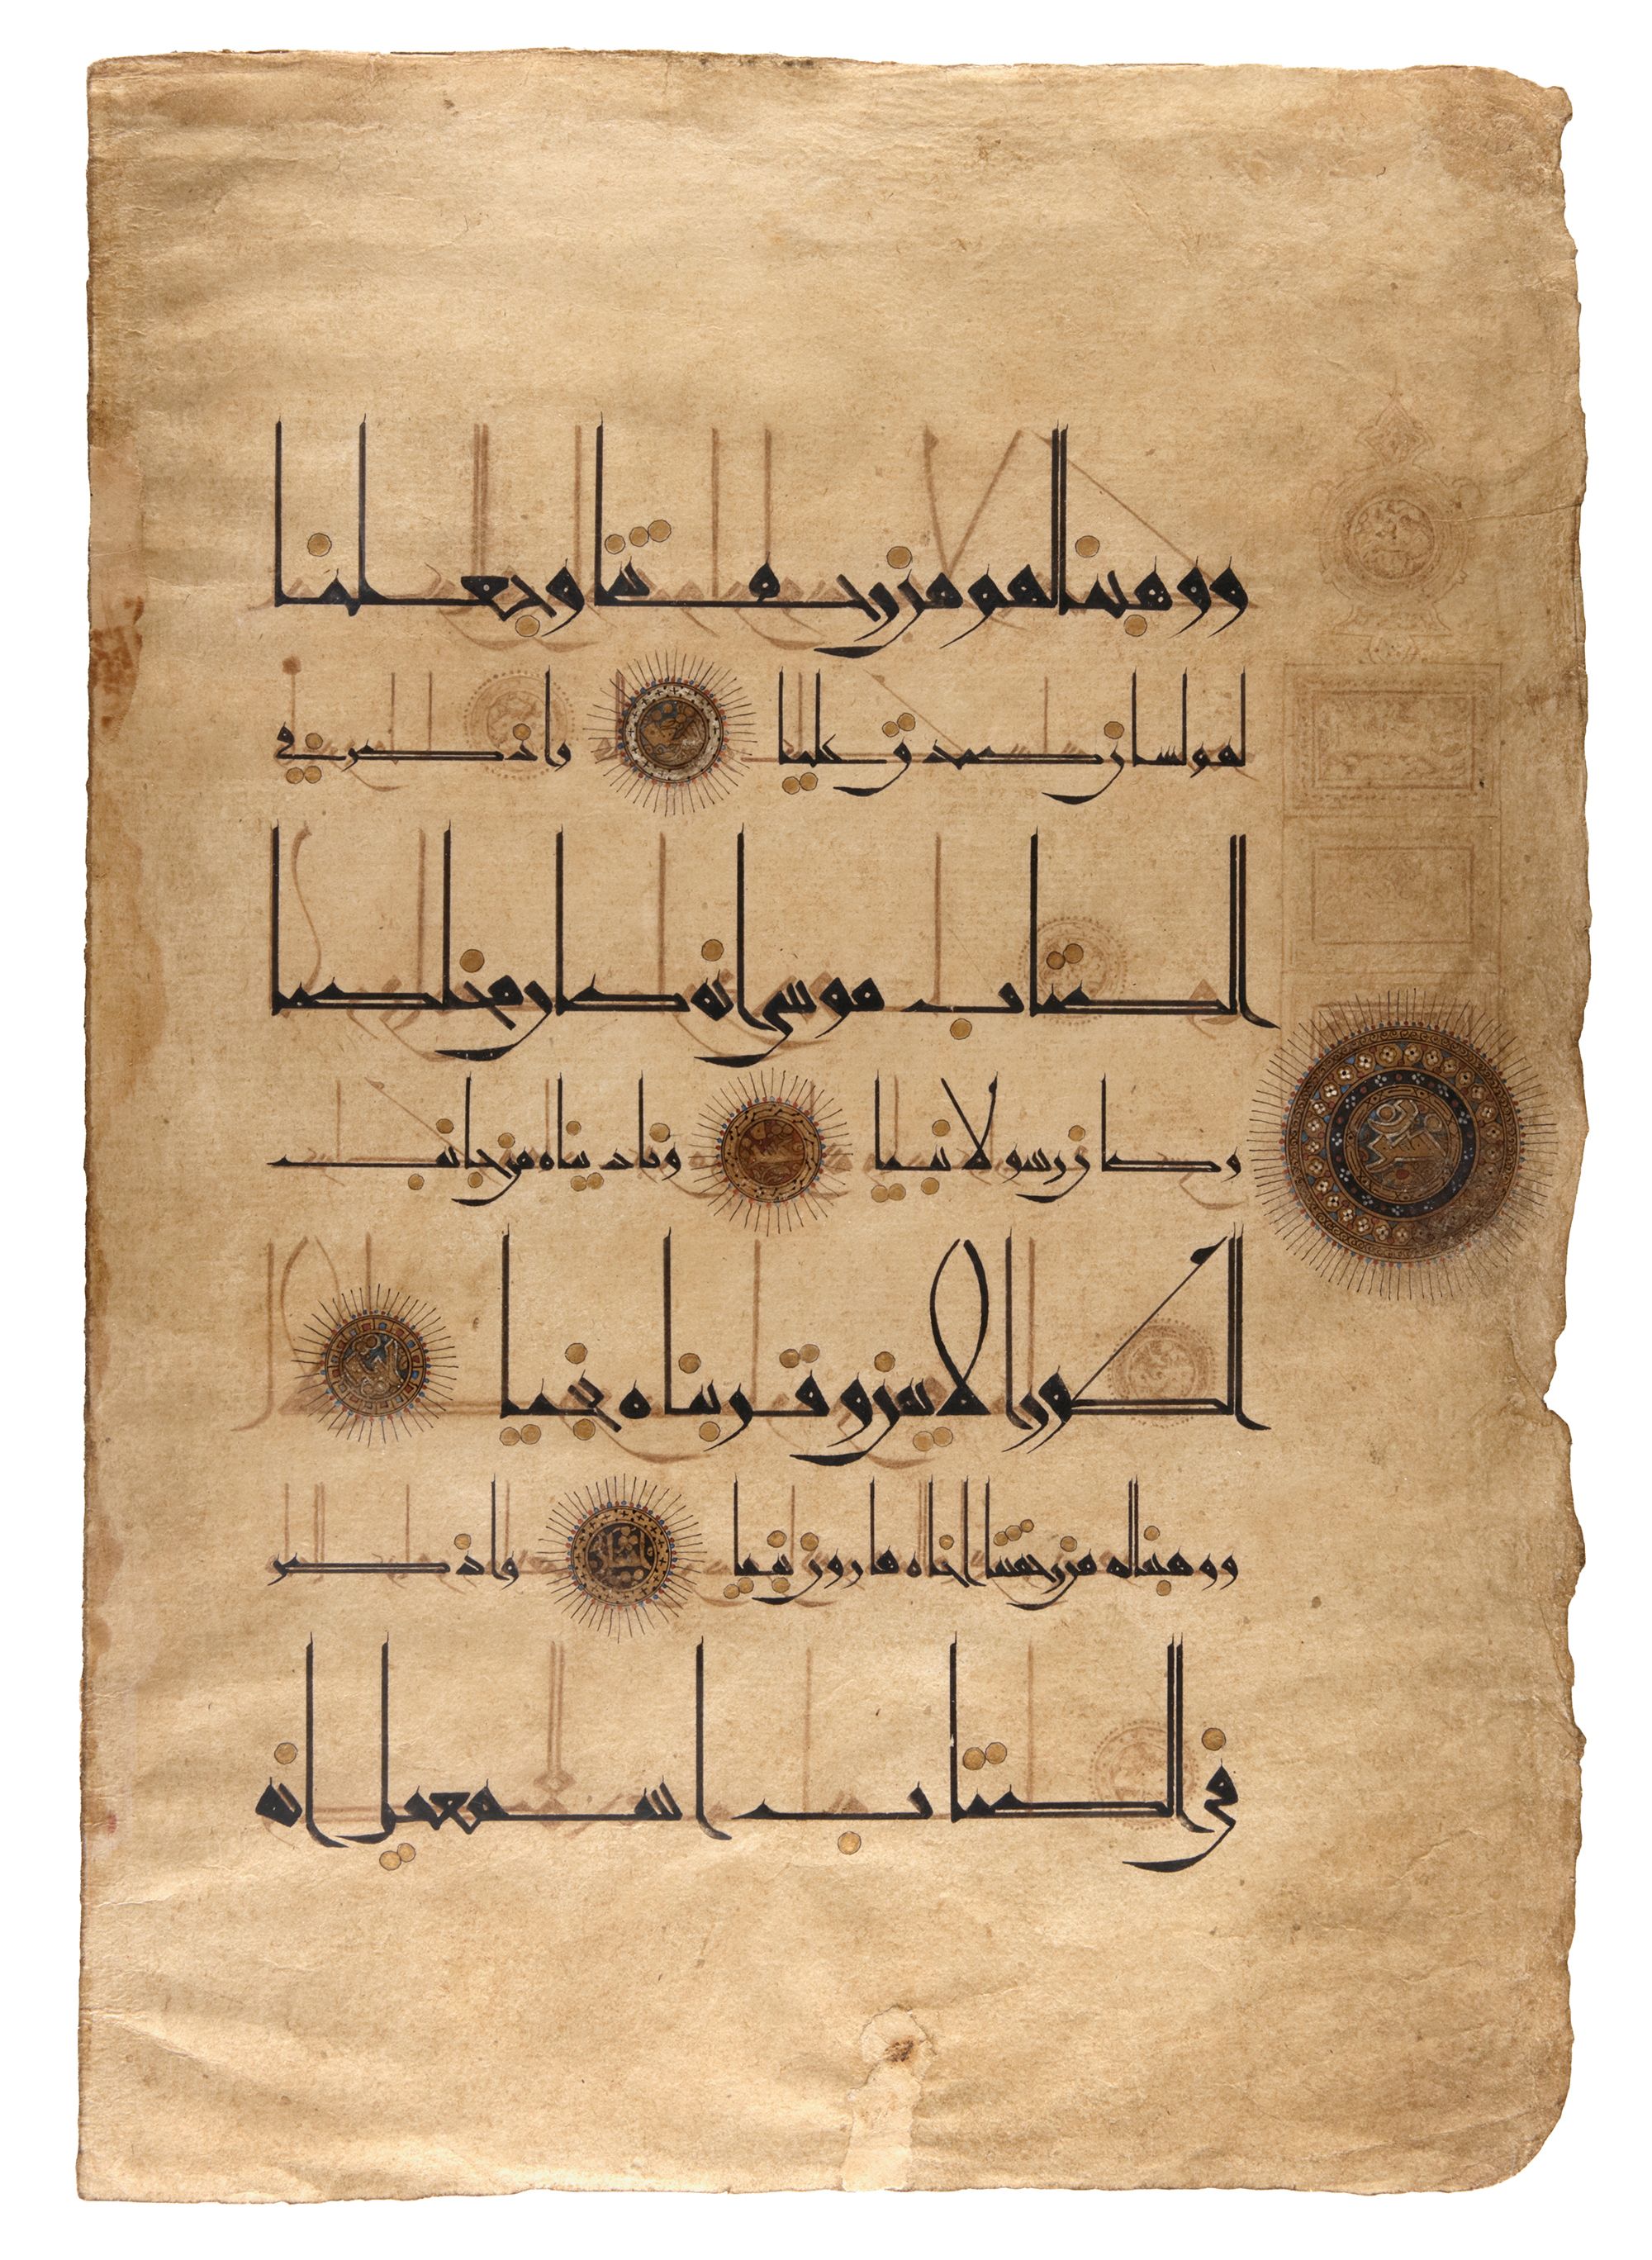 ووهبنا لهم من رحمتنا وجعلنا
لهم لسان صدق عليا واذكر في
الكتاب موسى انه كان مخلصا
وكان رسولا نبيا وناديناه من جانب
الطور الايمن وقربناه نجيا
ووهبنا له من رحمتنا اخاه هارون نبيا واذكر
في الكتاب اسمعيل انه